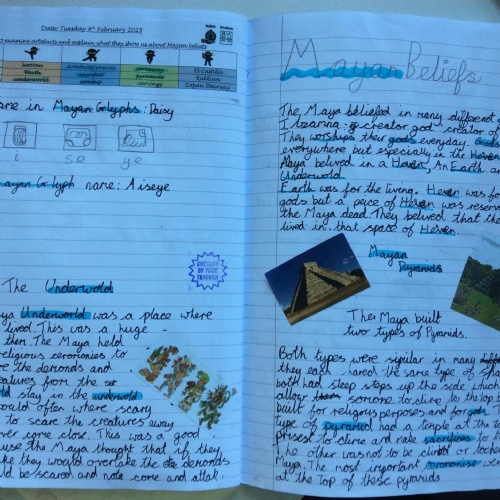 Date: Tuesday 4th February 2025
examine artefacts and explain what they show us about Mayan beliefs
heaven
ceremony
El Castillo
Earth
pyramids
Kukulcan
underworld
worship
carvings
Copan Stairway
ame in Mayan Glyphs: Daisy
i se ye
ayan Glyph name: Aiseye
CHECKED BY YOUR TEACHER
The Underwold
ya Underworld was a place where
lived. This was a huge
then. The Maya held
religious ceromonies to
re the demonds and
eatures from the
ld stay in the underwold
ould often where scary
to scare the creatures away
ver come close. This was a good
use the Maya thought that if they
ke they would overtake the demonds
ld be scared and note come and attak.
Mayan Beliefs
The Maya beliefed in many different g
Itzamna: creator god creator of
They worships ther gods everyday. Gods
everywhere but especially in the Heven
Maya belived in a Heven, An Earth an
Underworld.
Earth was for the living. Heven was for
gods but a peice of Heven was reserve
the Maya dead. They belived that the
lived in that space of Heven.
Mayan
Pyramids
The Maya built
two types of Pyramids.
Both types were sipilar in many
they each hared the same type of sha
both had steep steps up the side which
allow somone to climb to the top b
built for religious purposes and for gods.
type of pyramid had a temple at the to
priest to clime and make sacrifices to
he other was not to be climbd or toche
Maya. The most important ceromonise we
at the Top of these pyramids